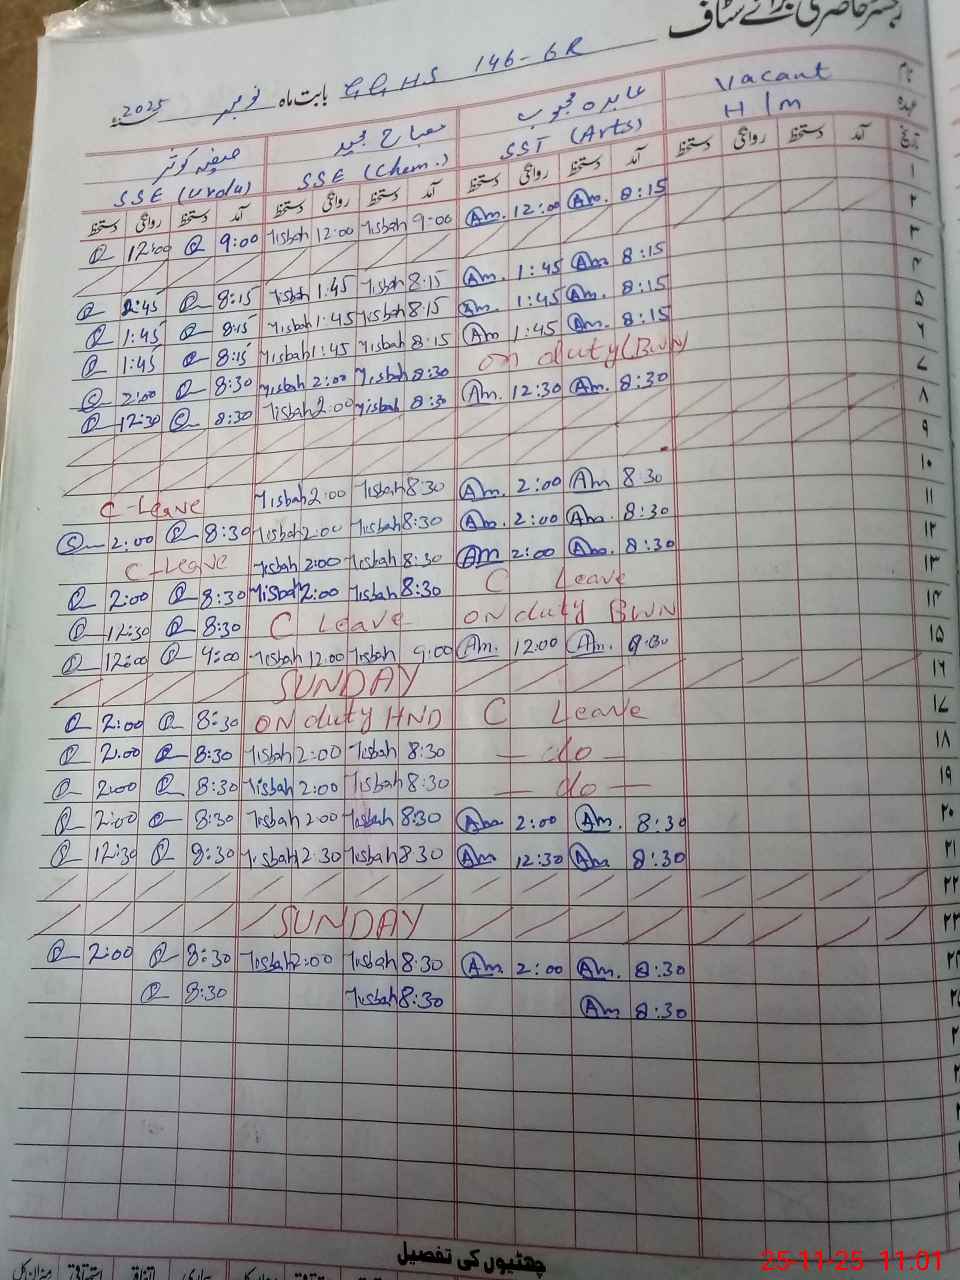 رجسٹر حاضری برائے سٹاف
بابت ماہ GGHS 146-6R نومبر 2025ء
نام Vacant عابدہ محبوب مصباح مجید صفیہ کوثر
عہدہ H/m SST (Arts) SSE (Chem.) SSE (Urdu)
تاریخ آمد دستخط روانگی دستخط آمد دستخط روانگی دستخط آمد دستخط روانگی دستخط آمد دستخط روانگی دستخط
12:00 9:00 Misbah 12:00 Misbah 9:00 Am. 12:00 Am. 8:15 ۱
۲
1:45 8:15 Misbah 1:45 Misbah 8:15 Am. 1:45 Am 8:15 ۳
1:45 8:15 Misbah 1:45 Misbah 8:15 Am. 1:45 Am. 8:15 ۴
1:45 8:15 Misbah 1:45 Misbah 8:15 Am 1:45 Am. 8:15 ۵
2:00 8:30 Misbah 2:00 Misbah 8:30 on duty (BWN) ۶
12:30 8:30 Misbah 2:00 Misbah 8:30 Am. 12:30 Am. 8:30 ۷
۸
۹
C-Leave Misbah 2:00 Misbah 8:30 Am. 2:00 Am 8:30 ۱۰
2:00 8:30 Misbah 2:00 Misbah 8:30 Am. 2:00 Am. 8:30 ۱۱
C-Leave Misbah 2:00 Misbah 8:30 Am 2:00 Am. 8:30 ۱۲
2:00 8:30 Misbah 2:00 Misbah 8:30 C Leave ۱۳
12:30 8:30 C Leave on duty BWN ۱۴
12:00 9:00 Misbah 12:00 Misbah 9:00 Am. 12:00 Am. 8:30 ۱۵
SUNDAY ۱۶
2:00 8:30 ON duty HND C Leave ۱۷
2:00 8:30 Misbah 2:00 Misbah 8:30 — do — ۱۸
2:00 8:30 Misbah 2:00 Misbah 8:30 — do — ۱۹
2:00 8:30 Misbah 2:00 Misbah 8:30 Am 2:00 Am. 8:30 ۲۰
12:30 8:30 Misbah 12:30 Misbah 8:30 Am 12:30 Am 8:30 ۲۱
۲۲
SUNDAY ۲۳
2:00 8:30 Misbah 2:00 Misbah 8:30 Am. 2:00 Am. 8:30 ۲۴
8:30 Misbah 8:30 Am 8:30 ۲۵
چھٹیوں کی تفصیل
بیماری اتفاقی استحقاقی میزان کل
25-11-25 11:01